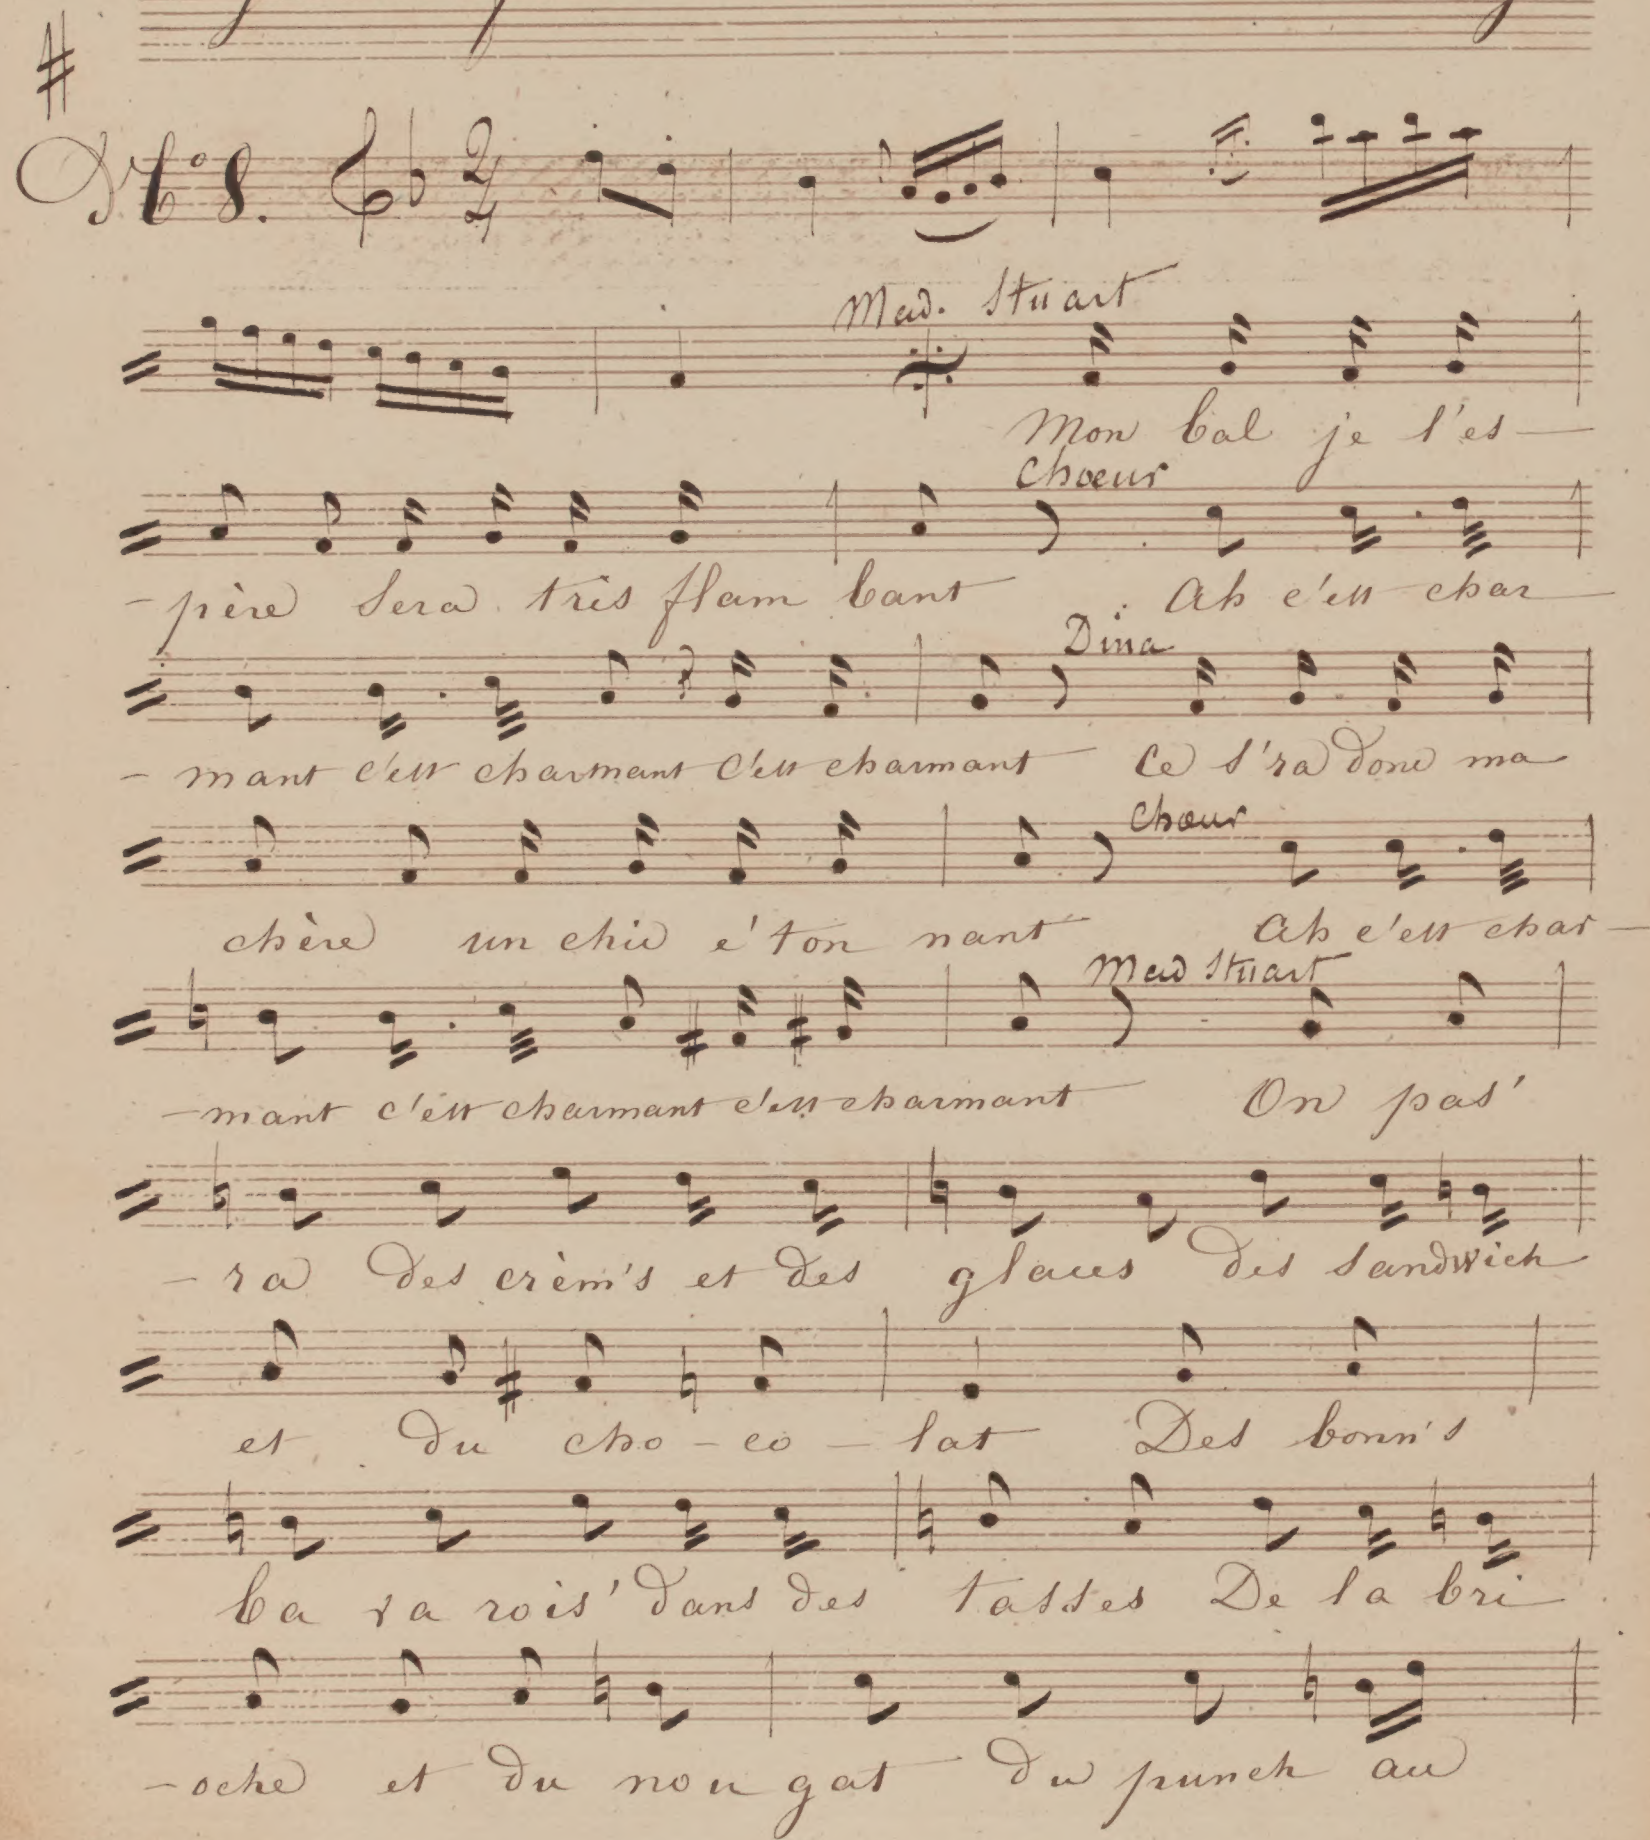 No. 8.
Mad. Stuart
Mon bal je l'es—
Chœur
—père sera très flam bant Ah c'est char—
Dina
—mant c'est charmant c'est charmant Ce s'ra donc ma
Chœur
chère un chic é'ton nant Ah c'est char—
Mad Stuart
—mant c'est charmant c'est charmant On pas'
—ra des crèm's et des glaces des sandwich
et du cho—co—lat Des bonn's
ba va rois' dans des tasses De la bri
—oche et du nou gat du punch au